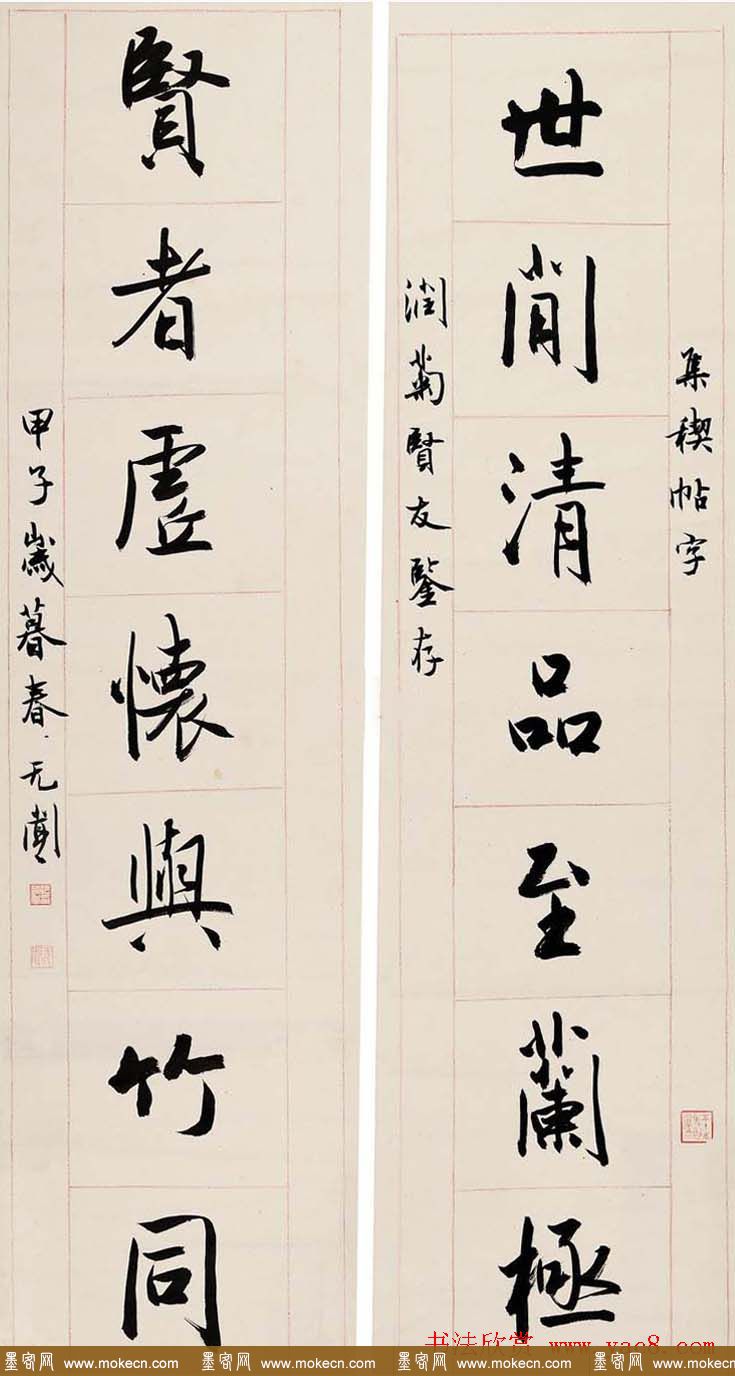 集稧帖字
世閒清品至蘭極
潤菊賢友鋻存
賢者虛懷與竹同
甲子歲暮春 无聞
书法欣赏 www.yac8.com
墨客网 www.mokecn.com 墨客网 www.mokecn.com 墨客网 www.mokecn.com 墨客网 www.mokecn.com